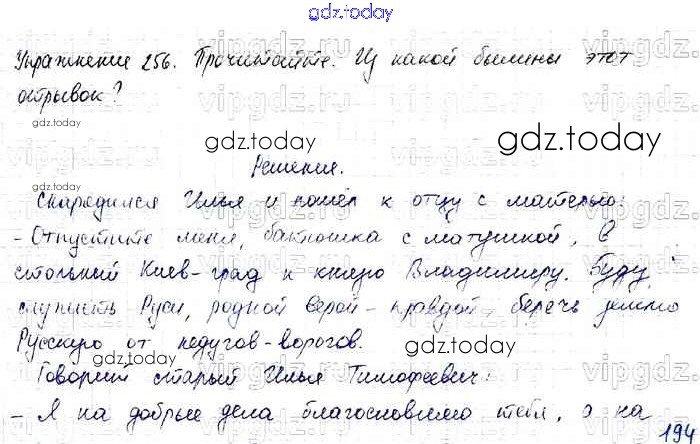 gdz.today
Упражнение 256. Прочитайте. Из какой былины этот
отрывок?
gdz.today
gdz.today
gdz.today
Решение.
gdz.today
Снарядился Илья и пошёл к отцу с матерью:
- Отпустите меня, батюшка с матушкой, в
стольный Киев-град к князю Владимиру. Буду
служить Руси, родной верой-правдой, беречь землю
Русскую от недугов-ворогов.
gdz.today
gdz.today
Говорит старый Илья Тимофеевич:
- Я на добрые дела благословлю тебя, а на
194